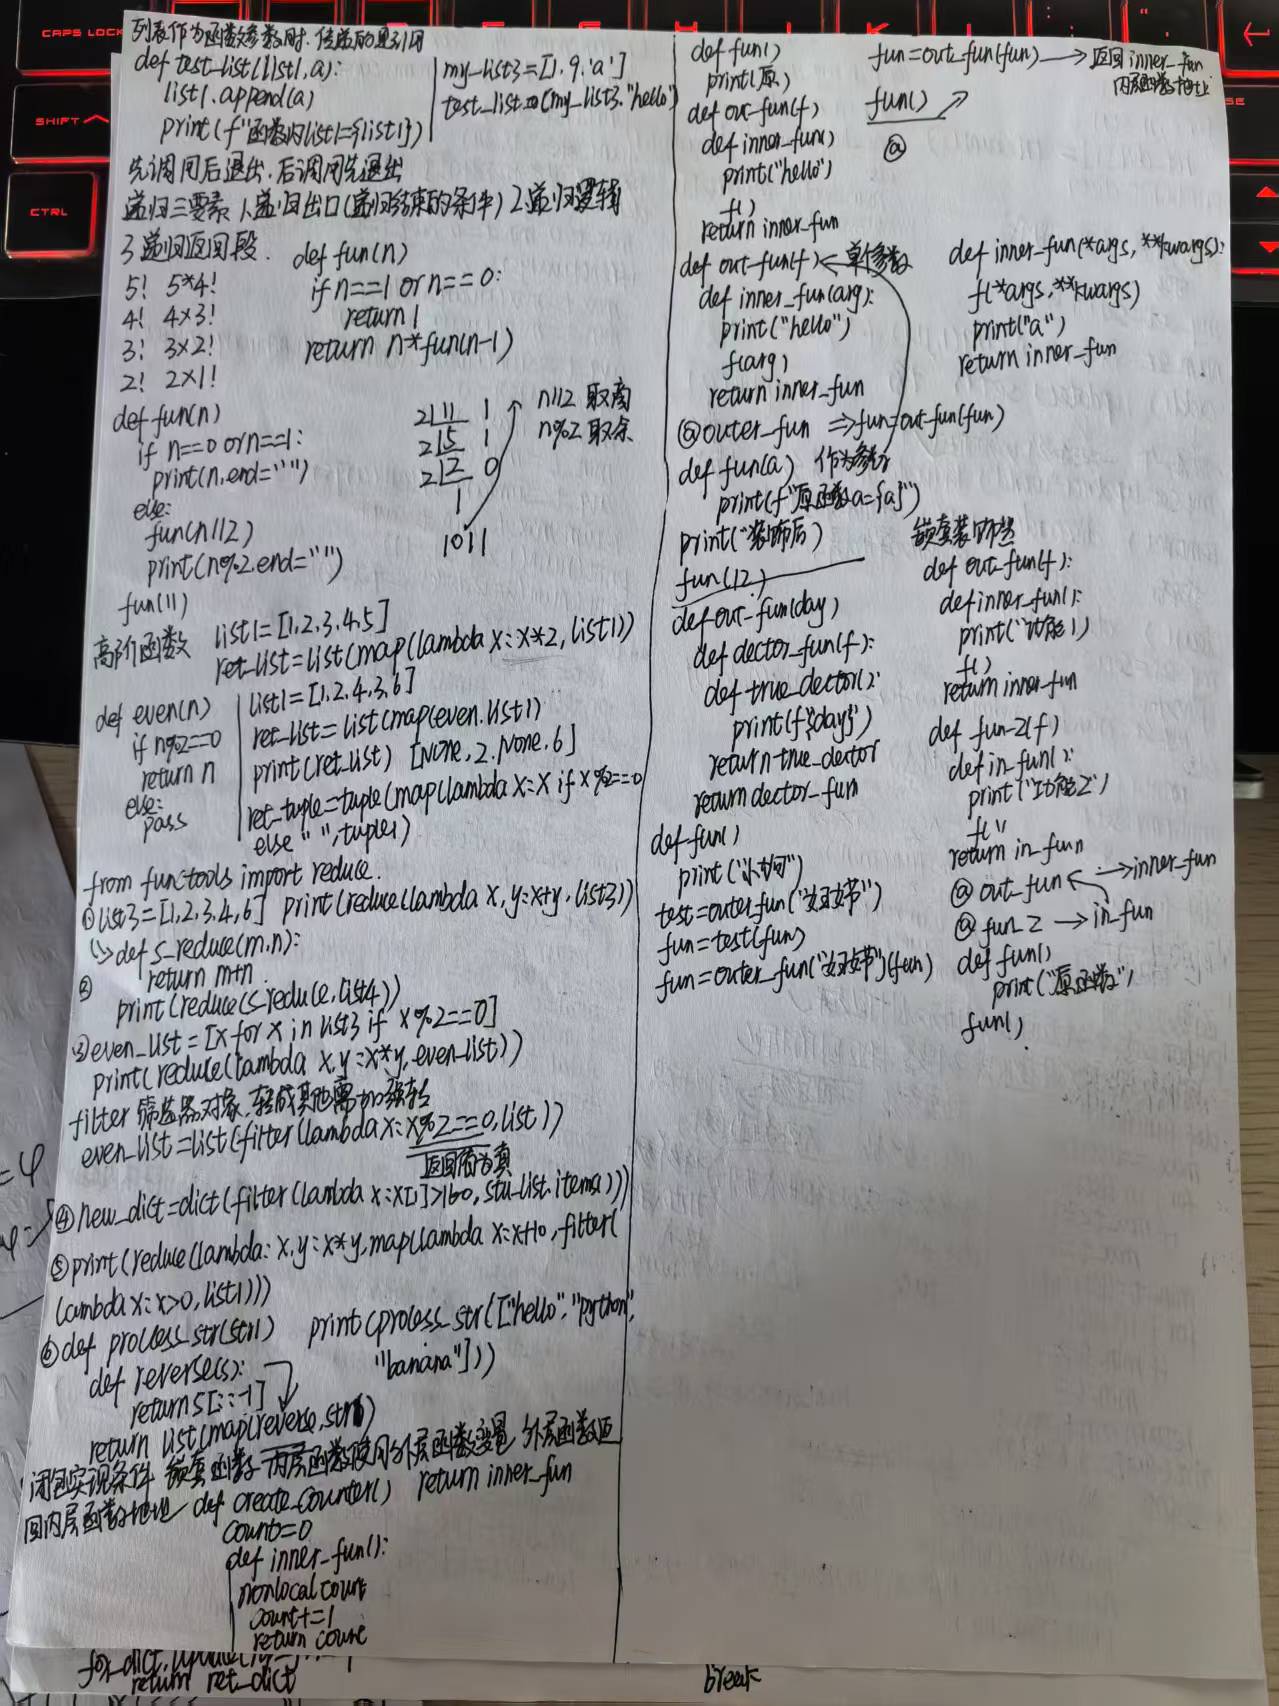 CAPS LOCK
SHIFT
CTRL
列表作为函数参数时.传递的是引用
def test_list(list1,a):
list1.append(a)
print(f"函数内list1={list1})
my_list3=[1.9.'a']
test_list(my_list3."hello")
先调用后退出.后调用先退出
递归三要素 1.递归出口(递归结束的条件) 2.递归逻辑
3 递归返回段.
def fun(n)
if n==1 or n==0:
return 1
return n*fun(n-1)
5! 5*4!
4! 4×3!
3! 3×2!
2! 2×1!
def fun(n)
if n==0 or n==1:
print(n,end="")
else:
fun(n//2)
print(n%2.end="")
fun(11)
2|11 1
2|5 1
2|2 0
1
1011
n//2 取商
n%2 取余
高阶函数
list1=[1.2.3.4.5]
ret_list=list(map(lambda x:x**2,list1))
def even(n)
if n%2==0
return n
else:
pass
list1=[1.2.4.3.6]
ret_list=list(map(even.list1)
print(ret_list) [None,2.None.6]
ret_tuple=tuple(map(lambda x:x if x%2==0
else "",tuple1)
from functools import reduce.
①list3=[1,2,3,4,6] print(reduce(lambda x,y:x+y,list3))
def s_reduce(m,n):
② return m+n
print(reduce(s_reduce,list4))
③even_list=[x for x in list3 if x%2==0]
print(reduce(lambda x,y:x*y,even_list))
filter 筛选器对象,转成其他需加强转
even_list=list(filter(lambda x:x%2==0,list))
返回值为真
④new_dict=dict(filter(lambda x:x[1]>160,stu_list.items()))
⑤print(reduce(lambda:x,y:x*y,map(lambda x:x+10,filter(
lambda x:x>0,list1)))
⑥def process_str(str1)
def reverse(s):
return s[::-1]
return list(map(reverse,str1)
print(process_str(["hello","python",
"banana"]))
闭包实现条件 嵌套函数 内层函数使用外层函数变量 外层函数返
回内层函数地址 def create_counter() return inner_fun
count=0
def inner_fun():
nonlocal count
count+=1
return count
return ret_dict
def fun()
print(原)
def out_fun(f)
def inner_fun()
print("hello")
f()
return inner_fun
fun=out_fun(fun) → 返回inner_fun
内层函数地址
fun()
@
def out_fun(f) ← 单个参数
def inner_fun(arg):
print("hello")
f(arg)
return inner_fun
def inner_fun(*args,**kwargs):
f(*args,**kwargs)
print("a")
return inner_fun
@outer_fun ⇒fun=out_fun(fun)
def fun(a) 作为参数
print(f"原函数a={a}")
print("装饰后)
fun(12)
def out_fun(day)
def dector_fun(f):
def true_dector():
print(f"{day}")
return true_dector
return dector_fun
def fun()
print("小河")
test=outer_fun("妇女节")
fun=test(fun)
fun=outer_fun("妇女节")(fun)
嵌套装饰器
def out_fun(f):
def inner_fun():
print("功能1)
f()
return inner_fun
def fun_2(f)
def in_fun():
print("功能2")
f()
return in_fun
@out_fun → inner_fun
@fun_2 → in_fun
def fun()
print("原函数")
fun()
break